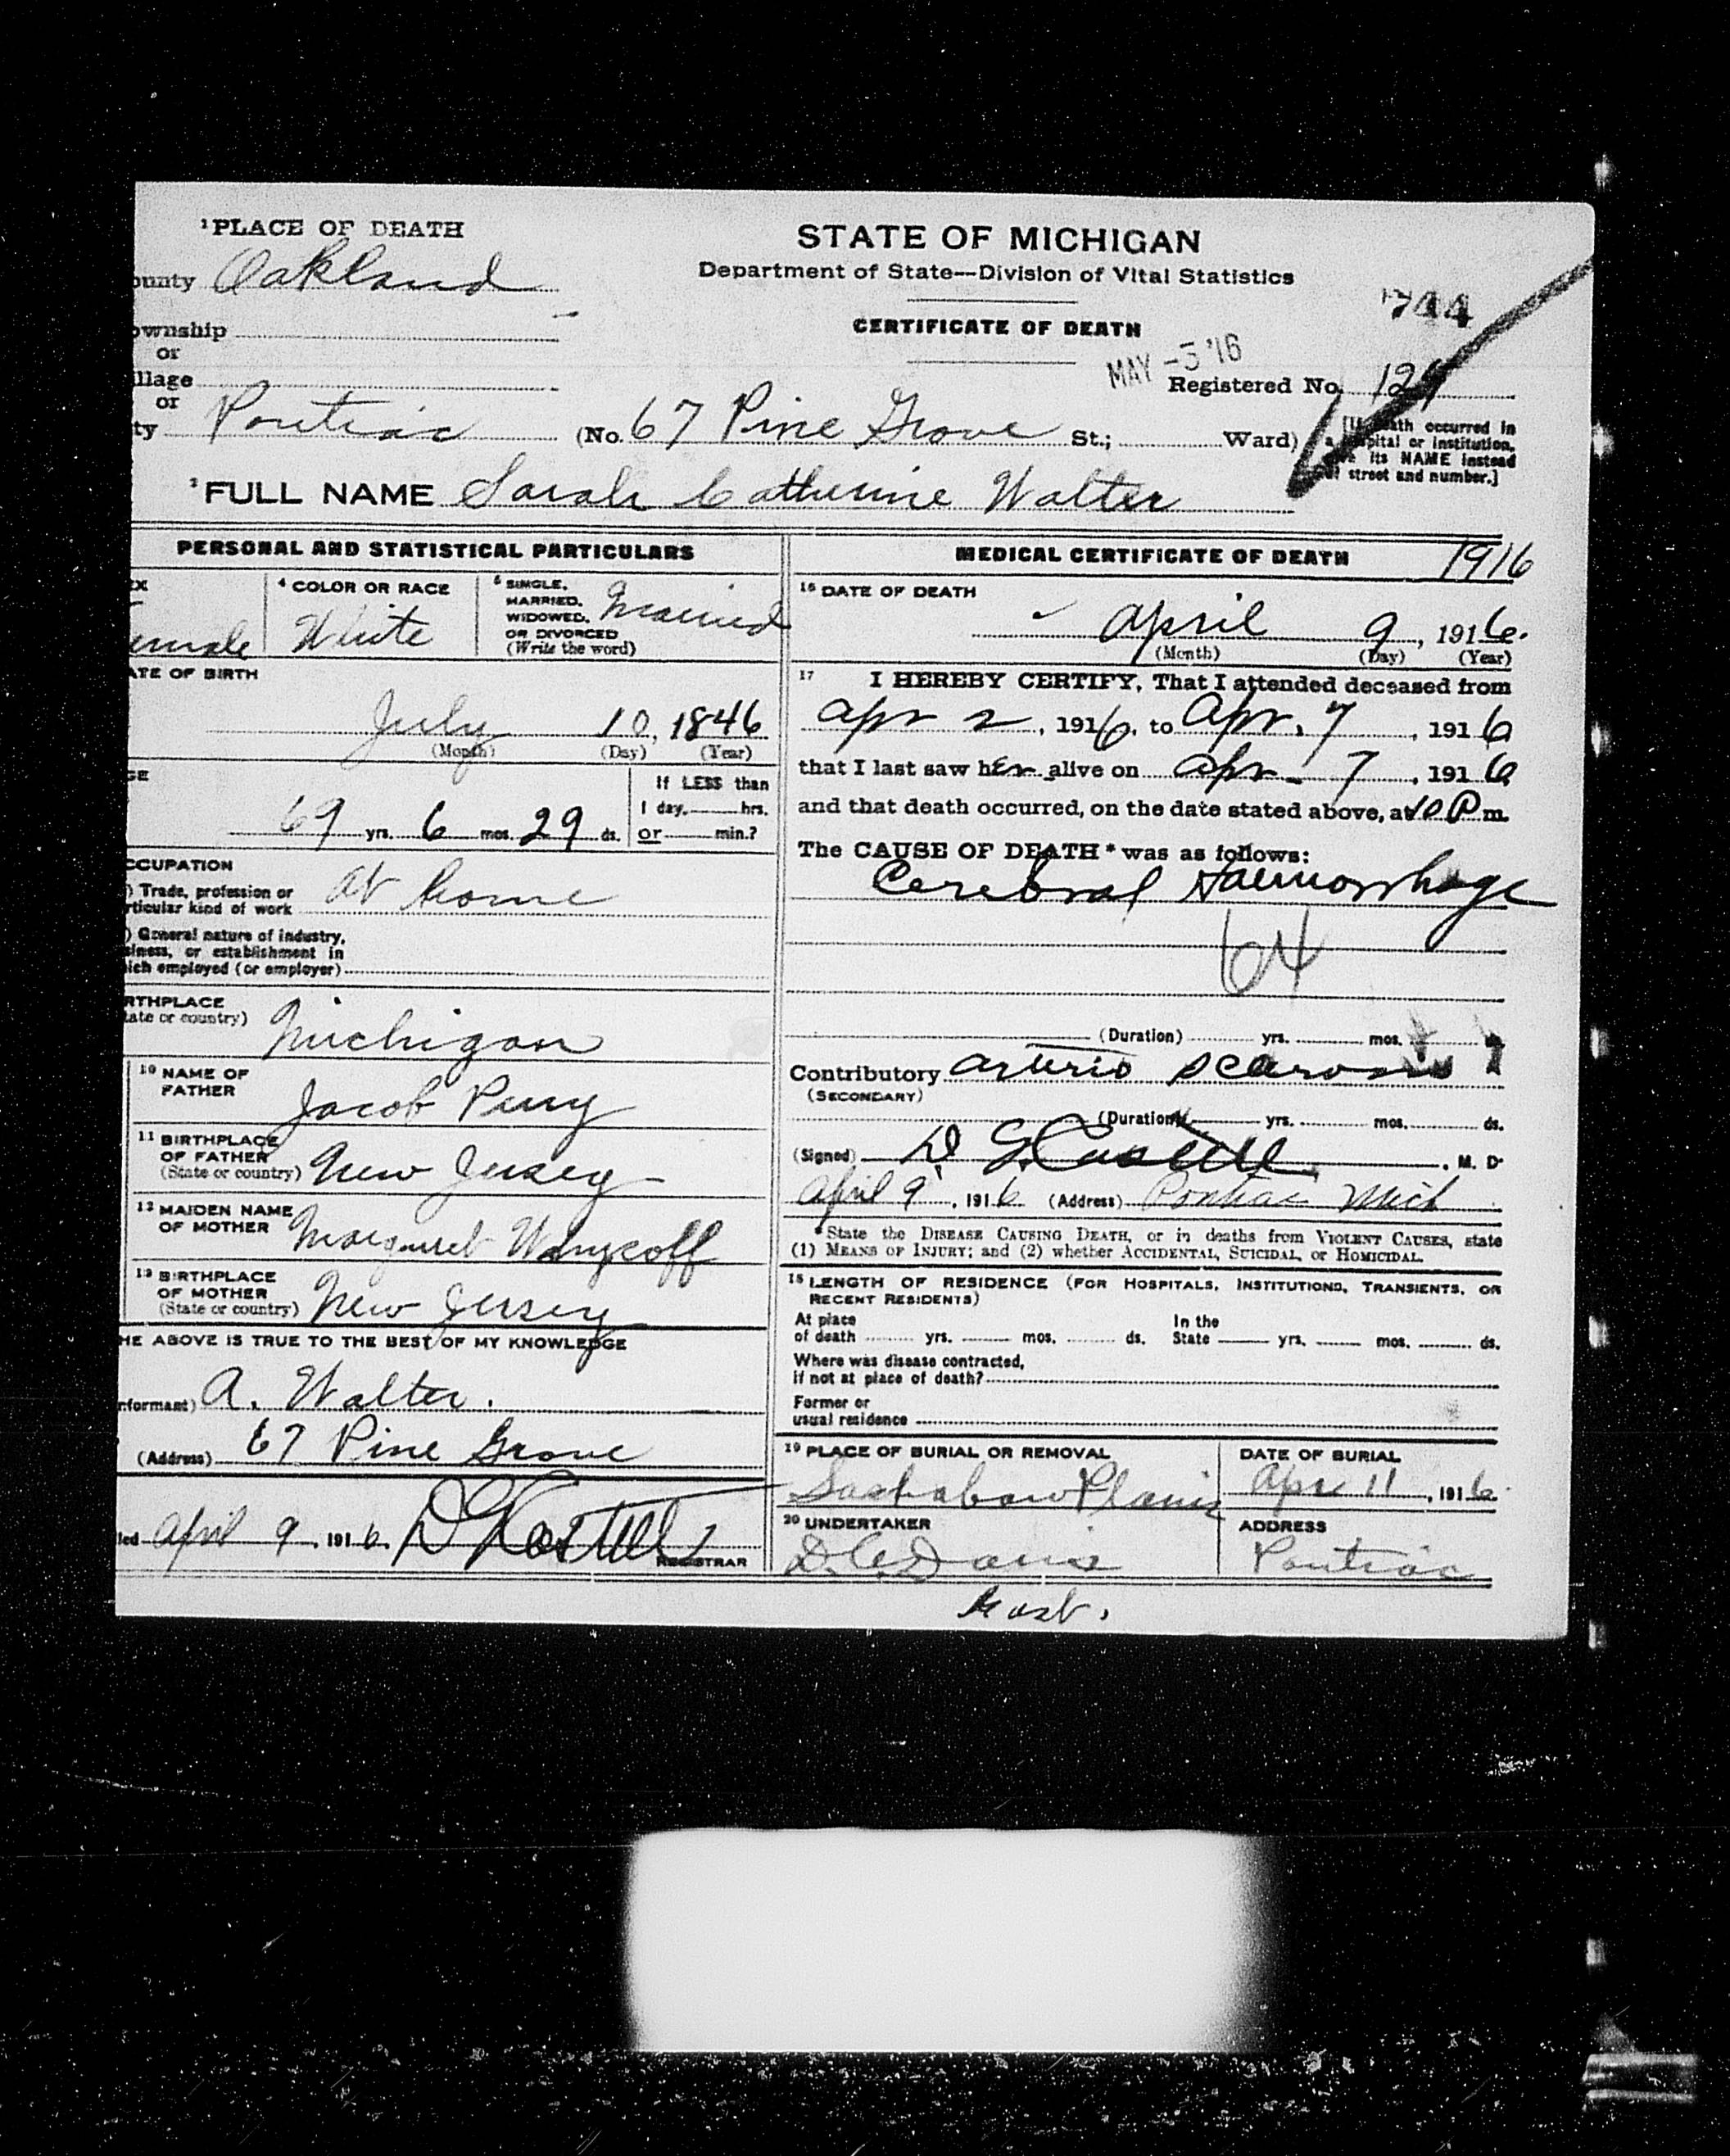 1 PLACE OF DEATH
STATE OF MICHIGAN
Department of State—Division of Vital Statistics
CERTIFICATE OF DEATH
ounty Oakland
744
ownship
or
MAY -5 '16
illage
Registered No.
or
ty Pontiac (No. 67 Pine Grove St.; Ward)
[If death occurred in
a hospital or institution,
give its NAME instead
of street and number.]
2 FULL NAME Sarah Catherine Walter
PERSONAL AND STATISTICAL PARTICULARS
EX
emale
4 COLOR OR RACE
White
5 SINGLE,
MARRIED,
WIDOWED,
OR DIVORCED
(Write the word)
Married
ATE OF BIRTH
July 10, 1846
(Month) (Day) (Year)
GE
69 yrs. 6 mos. 29 ds.
If LESS than
1 day, hrs.
or min.?
CCUPATION
) Trade, profession or
rticular kind of work At home
) General nature of industry,
siness, or establishment in
ich employed (or employer)
RTHPLACE
tate or country) Michigan
10 NAME OF
FATHER Jacob Perry
11 BIRTHPLACE
OF FATHER
(State or country) New Jersey
12 MAIDEN NAME
OF MOTHER Margaret
13 BIRTHPLACE
OF MOTHER
(State or country) New Jersey
HE ABOVE IS TRUE TO THE BEST OF MY KNOWLEDGE
nformant) A. Walter.
(Address) 67 Pine Grove
led April 9, 1916.
REGISTRAR
MEDICAL CERTIFICATE OF DEATH 1916
16 DATE OF DEATH
April 9, 1916.
(Month) (Day) (Year)
17 I HEREBY CERTIFY, That I attended deceased from
Apr 2, 1916, to Apr. 7, 1916
that I last saw her alive on Apr 7, 1916
and that death occurred, on the date stated above, at 10 P m.
The CAUSE OF DEATH* was as follows:
Cerebral Haemorrhage
64
(Duration) yrs. mos. ds.
Contributory Arterio Sclerosis
(SECONDARY)
(Duration) yrs. mos. ds.
(Signed) , M. D.
April 9, 1916 (Address) Pontiac Mich
*State the DISEASE CAUSING DEATH, or in deaths from VIOLENT CAUSES, state
(1) MEANS OF INJURY; and (2) whether ACCIDENTAL, SUICIDAL, or HOMICIDAL.
18 LENGTH OF RESIDENCE (FOR HOSPITALS, INSTITUTIONS, TRANSIENTS, OR
RECENT RESIDENTS)
At place
of death yrs. mos. ds.
In the
State yrs. mos. ds.
Where was disease contracted,
if not at place of death?
Former or
usual residence
19 PLACE OF BURIAL OR REMOVAL
Sashabaw Plains
DATE OF BURIAL
Apr 11, 1916.
20 UNDERTAKER
Davis
ADDRESS
Pontiac